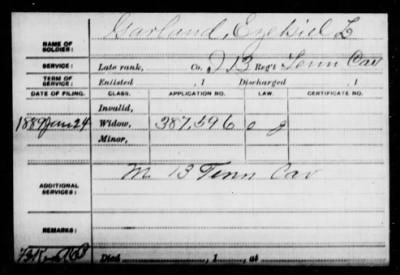 Garland, Ezekiel L
NAME OF SOLDIER:
SERVICE: Late rank, Co. I 13 Reg't Tenn Cav
TERM OF SERVICE: Enlisted , 1 Discharged , 1
DATE OF FILING. CLASS. APPLICATION NO. LAW. CERTIFICATE NO.
Invalid,
1889 Jan 24 Widow, 387,596
Minor,
ADDITIONAL SERVICES: M 13 Tenn Cav
REMARKS:
Died , 1 , at